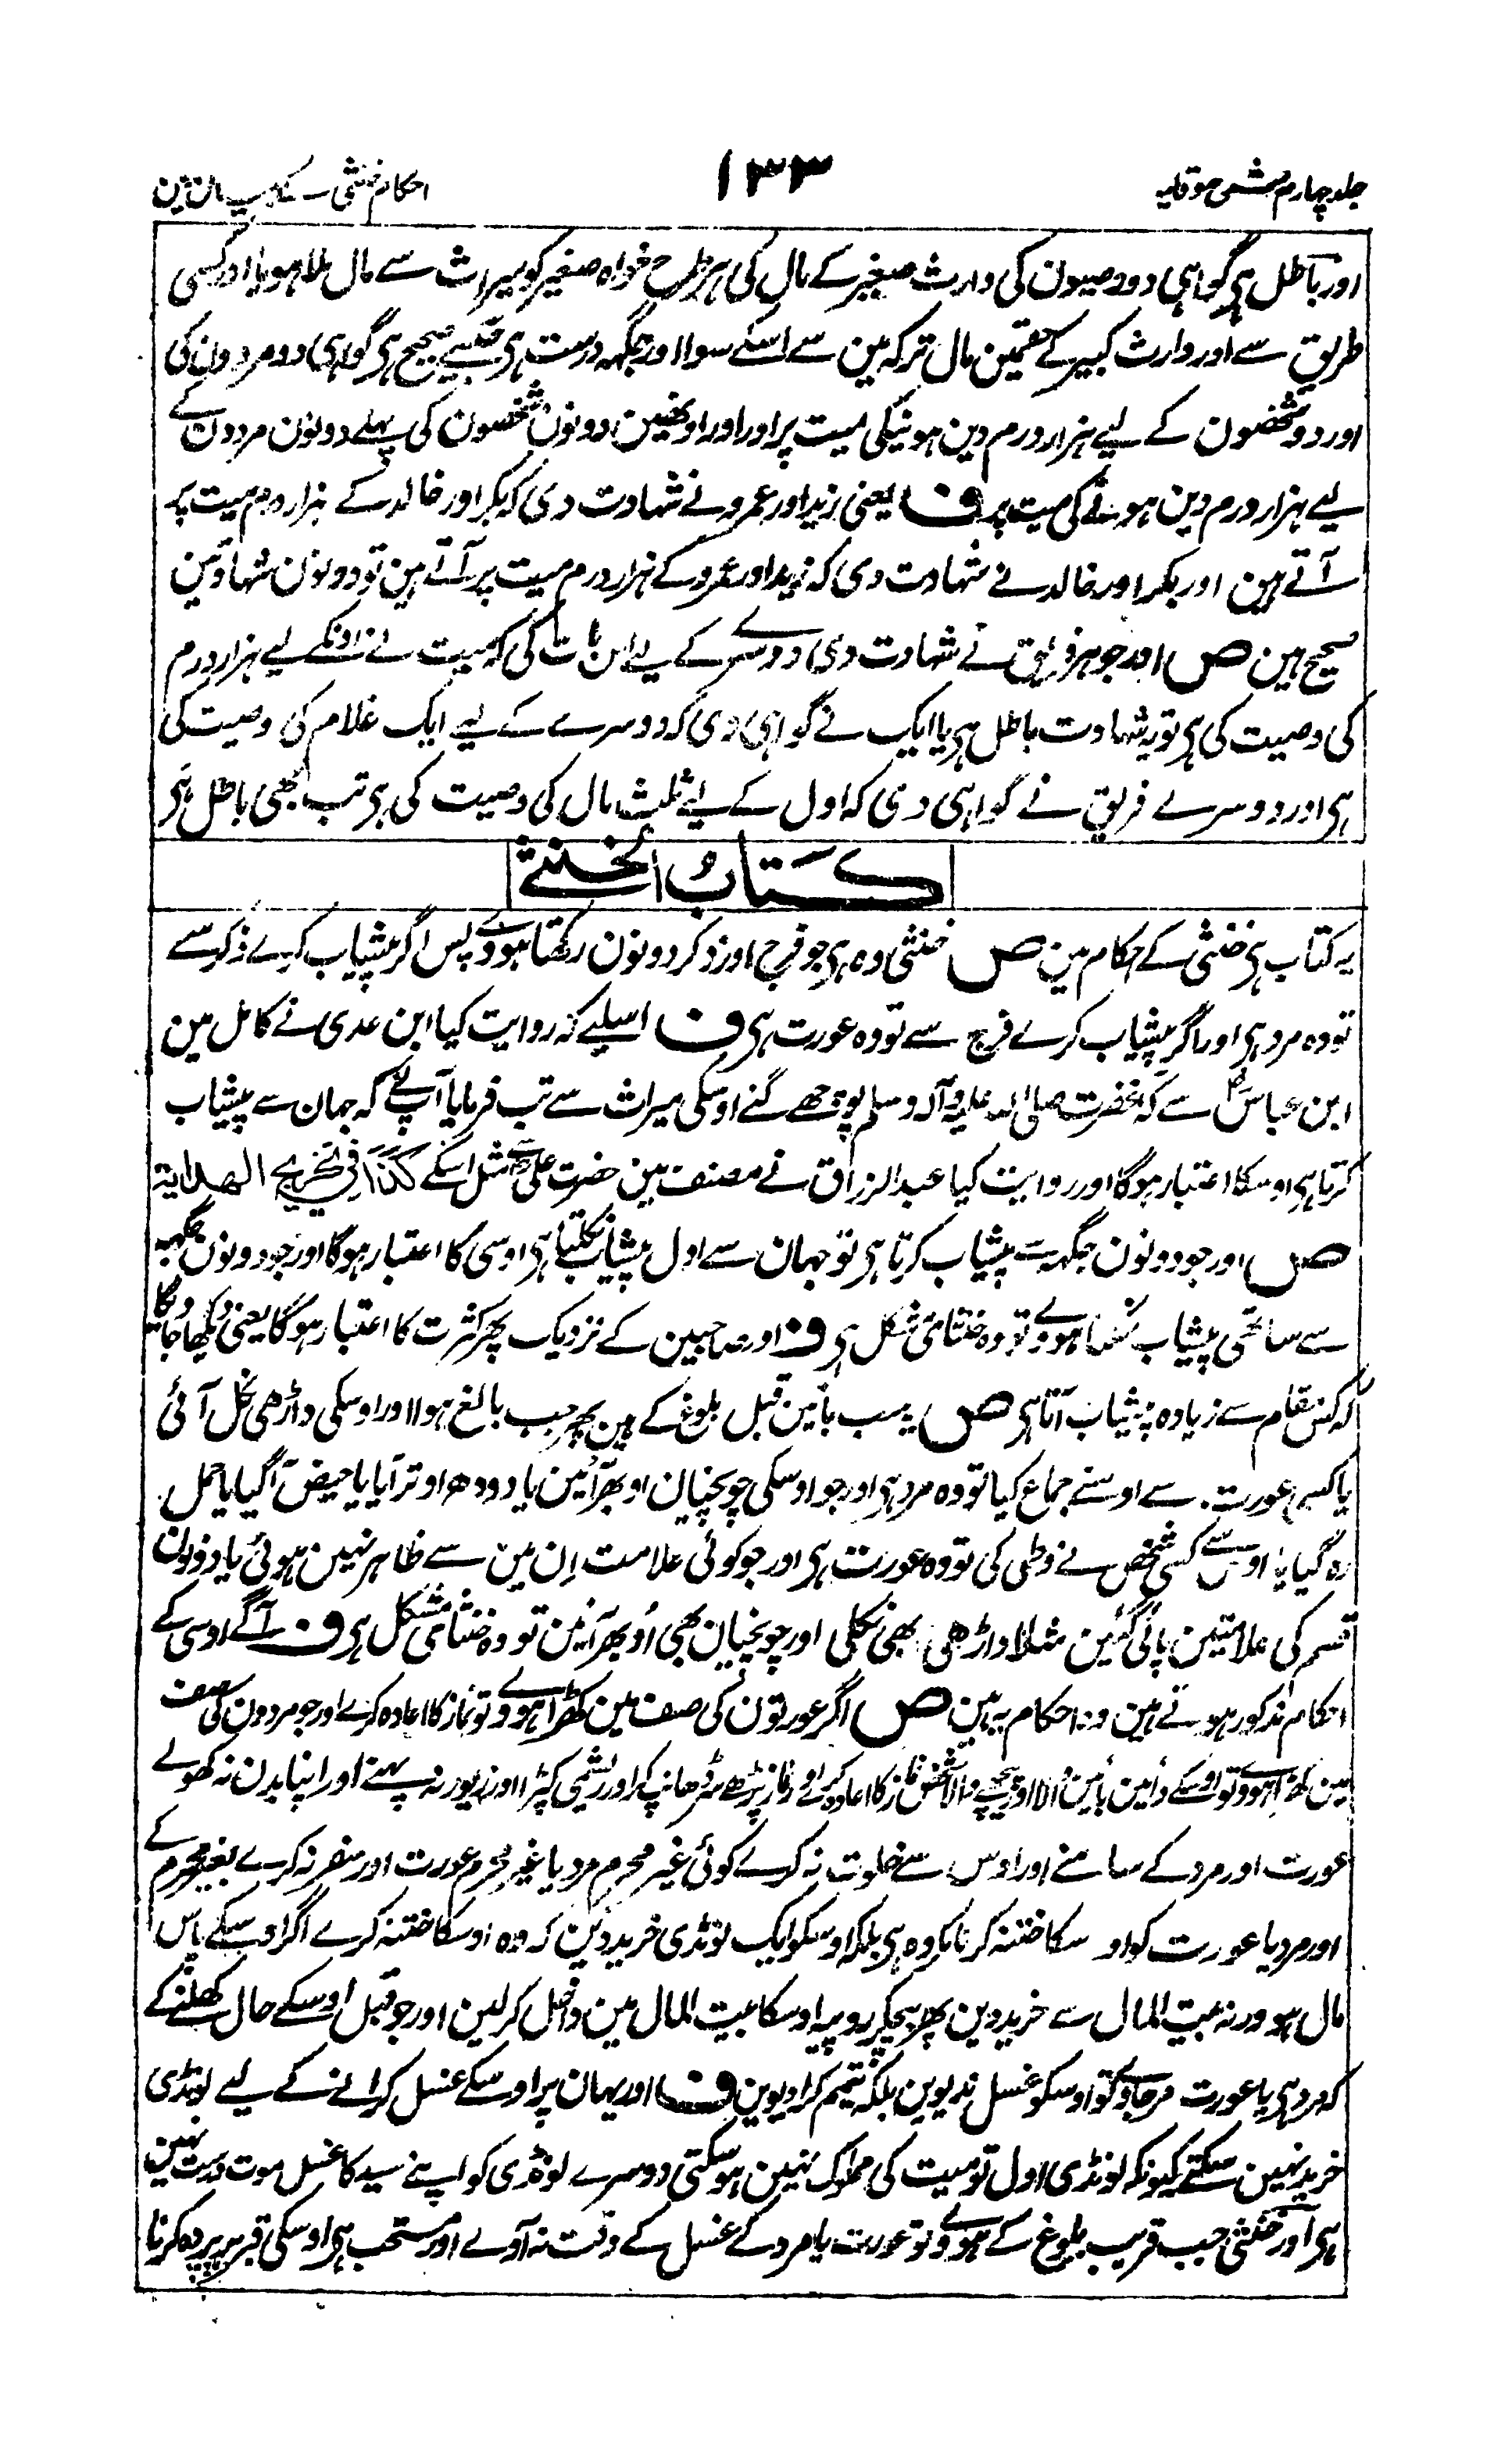 جلد چہارم شرح وقایہ
۱۳۳
احکام خنثی کے بیان مین
اور باطل ہی گواہی دو وصیون کی وارث صغیر کے مال کی ہر طرح خواہ صغیر کو میراث سے مال ملا ہو یا اور کسی
طریق سے اور وارث کبیر کے حقمین مال ترکہ مین سے اسکے سوا اور جگہہ درست ہی جیسے صحیح ہی گواہی دو مردون کی
اور دو شخصون کے لیے ہزار درم دین ہونیکی میت پر اور اور اونھین دونون شخصون کی پہلے دونون مردون کے
لیے ہزار درم دین ہونے کی میت پر ف یعنی زید اور عمرو نے شہادت دی کہ بکر اور خالد کے ہزار درم میت پر
آتے ہین اور بکر اور خالد نے شہادت دی کہ زید اور عمرو کے ہزار درم میت پر آتے ہین تو دونون شہادتین
صحیح ہین ص اور جو ہر فریق نے شہادت دی دوسرے کے لیے اس بات کی کہ میت نے اونکے لیے ہزار درم
کی وصیت کی ہی تو یہ شہادت باطل ہی یا ایک نے گواہی دی کہ دوسرے کے لیے ایک غلام کی وصیت کی
ہی اور دوسرے فریق نے گواہی دی کہ اول کے لیے ثلث مال کی وصیت کی ہی تب بھی باطل ہی
کتاب الخنثے
یہ کتاب ہی خنثی کے احکام مین ص خنثی وہ ہی جو فرج اور ذکر دونون رکھتا ہووے پس اگر پیشاب کرے ذکر سے
تو وہ مرد ہی اور اگر پیشاب کرے فرج سے تو وہ عورت ہی ف اسلیے کہ روایت کیا ابن عدی نے کامل مین
ابن عباس سے کہ آنحضرت صلی اللہ علیہ وآلہ وسلم پوچھے گئے اوسکی میراث سے تب فرمایا آپ نے کہ جہان سے پیشاب
کرتا ہی اوسکا اعتبار ہوگا اور روایت کیا عبدالرزاق نے مصنف مین حضرت علی سے مثل اسکے کَذَا فِی تَخْرِیجِ الھدایة
ص اور جو دونون جگہہ سے پیشاب کرتا ہی تو جہان سے اول پیشاب نکلتا ہی اوسی کا اعتبار ہوگا اور جو دونون جگہہ
سے ساتھی پیشاب نکلتا ہووے تو وہ خنثای مشکل ہی ف اور صاحبین کے نزدیک پھر کثرت کا اعتبار ہوگا یعنی دیکھا جاویگا
کہ کس مقام سے زیادہ پیشاب آتا ہی ص یہ سب باتین قبل بلوغ کے ہین پھر جب بالغ ہوا اور اوسکی داڑھی نکل آئی
یا کسی عورت سے اوسنے جماع کیا تو وہ مرد ہی اور جو اوسکی چوچیان اوبھر آئین یا دودھ اوتر آیا یا حیض آگیا یا حمل
رہ گیا یا اوس سے کسی شخص نے وطی کی تو وہ عورت ہی اور جو کوئی علامت اِن مین سے ظاہر نہین ہوئی یا دونون
قسم کی علامتین پائی گئین مثلا داڑھی بھی نکلی اور چوچیان بھی اُوبھر آئین تو وہ خنثای مشکل ہی ف آگے اوسی کے
احکام مذکور ہوتے ہین وہ احکام یہ ہین ص اگر عورتون کی صف مین کھڑا ہووے تو نماز کا اعادہ کرے اور جو مردون کی صف
مین کھڑا ہووے تو اوسکے داہین بائین والا اور پیچھے والا شخص نماز کا اعادہ کرے اور نماز پڑھے سر ڈھانپ کر اور ریشمی کپڑا اور زیور نہ پہنے اور اپنا بدن نہ کھولے
عورت اور مرد کے سامنے اور اوس سے خلوت نہ کرے کوئی غیر محرم مرد یا غیر محرم عورت اور سفر نہ کرے بغیر محرم کے
اور مرد یا عورت کو اوسکا ختنہ کرنا مکروہ ہی بلکہ اوسکو ایک لونڈی خرید دین کہ وہ اوسکا ختنہ کرے اگر اوسکے پاس
مال ہو ورنہ بیت المال سے خرید دین پھر بیچکر روپیہ اوسکا بیت المال مین داخل کرلین اور جو قبل اوسکے حال کھلنے کے
کہ مرد ہی یا عورت مرجاوے تو اوسکو غسل ندیوین بلکہ تیمم کرادیوین ف اور یہان پر اوسکے غسل کرانے کے لیے لونڈی
خرید نہین سکتے کیونکہ لونڈی اول تو میت کی مملوک نہین ہوسکتی دوسرے لونڈی کو اپنے سید کا غسل موت درست نہین
ہی اور خنثی جب قریب بلوغ کے ہووے تو عورت یا مرد کے غسل کے وقت نہ آوے اور مستحب ہی اوسکی قبر پر پردہ کرنا